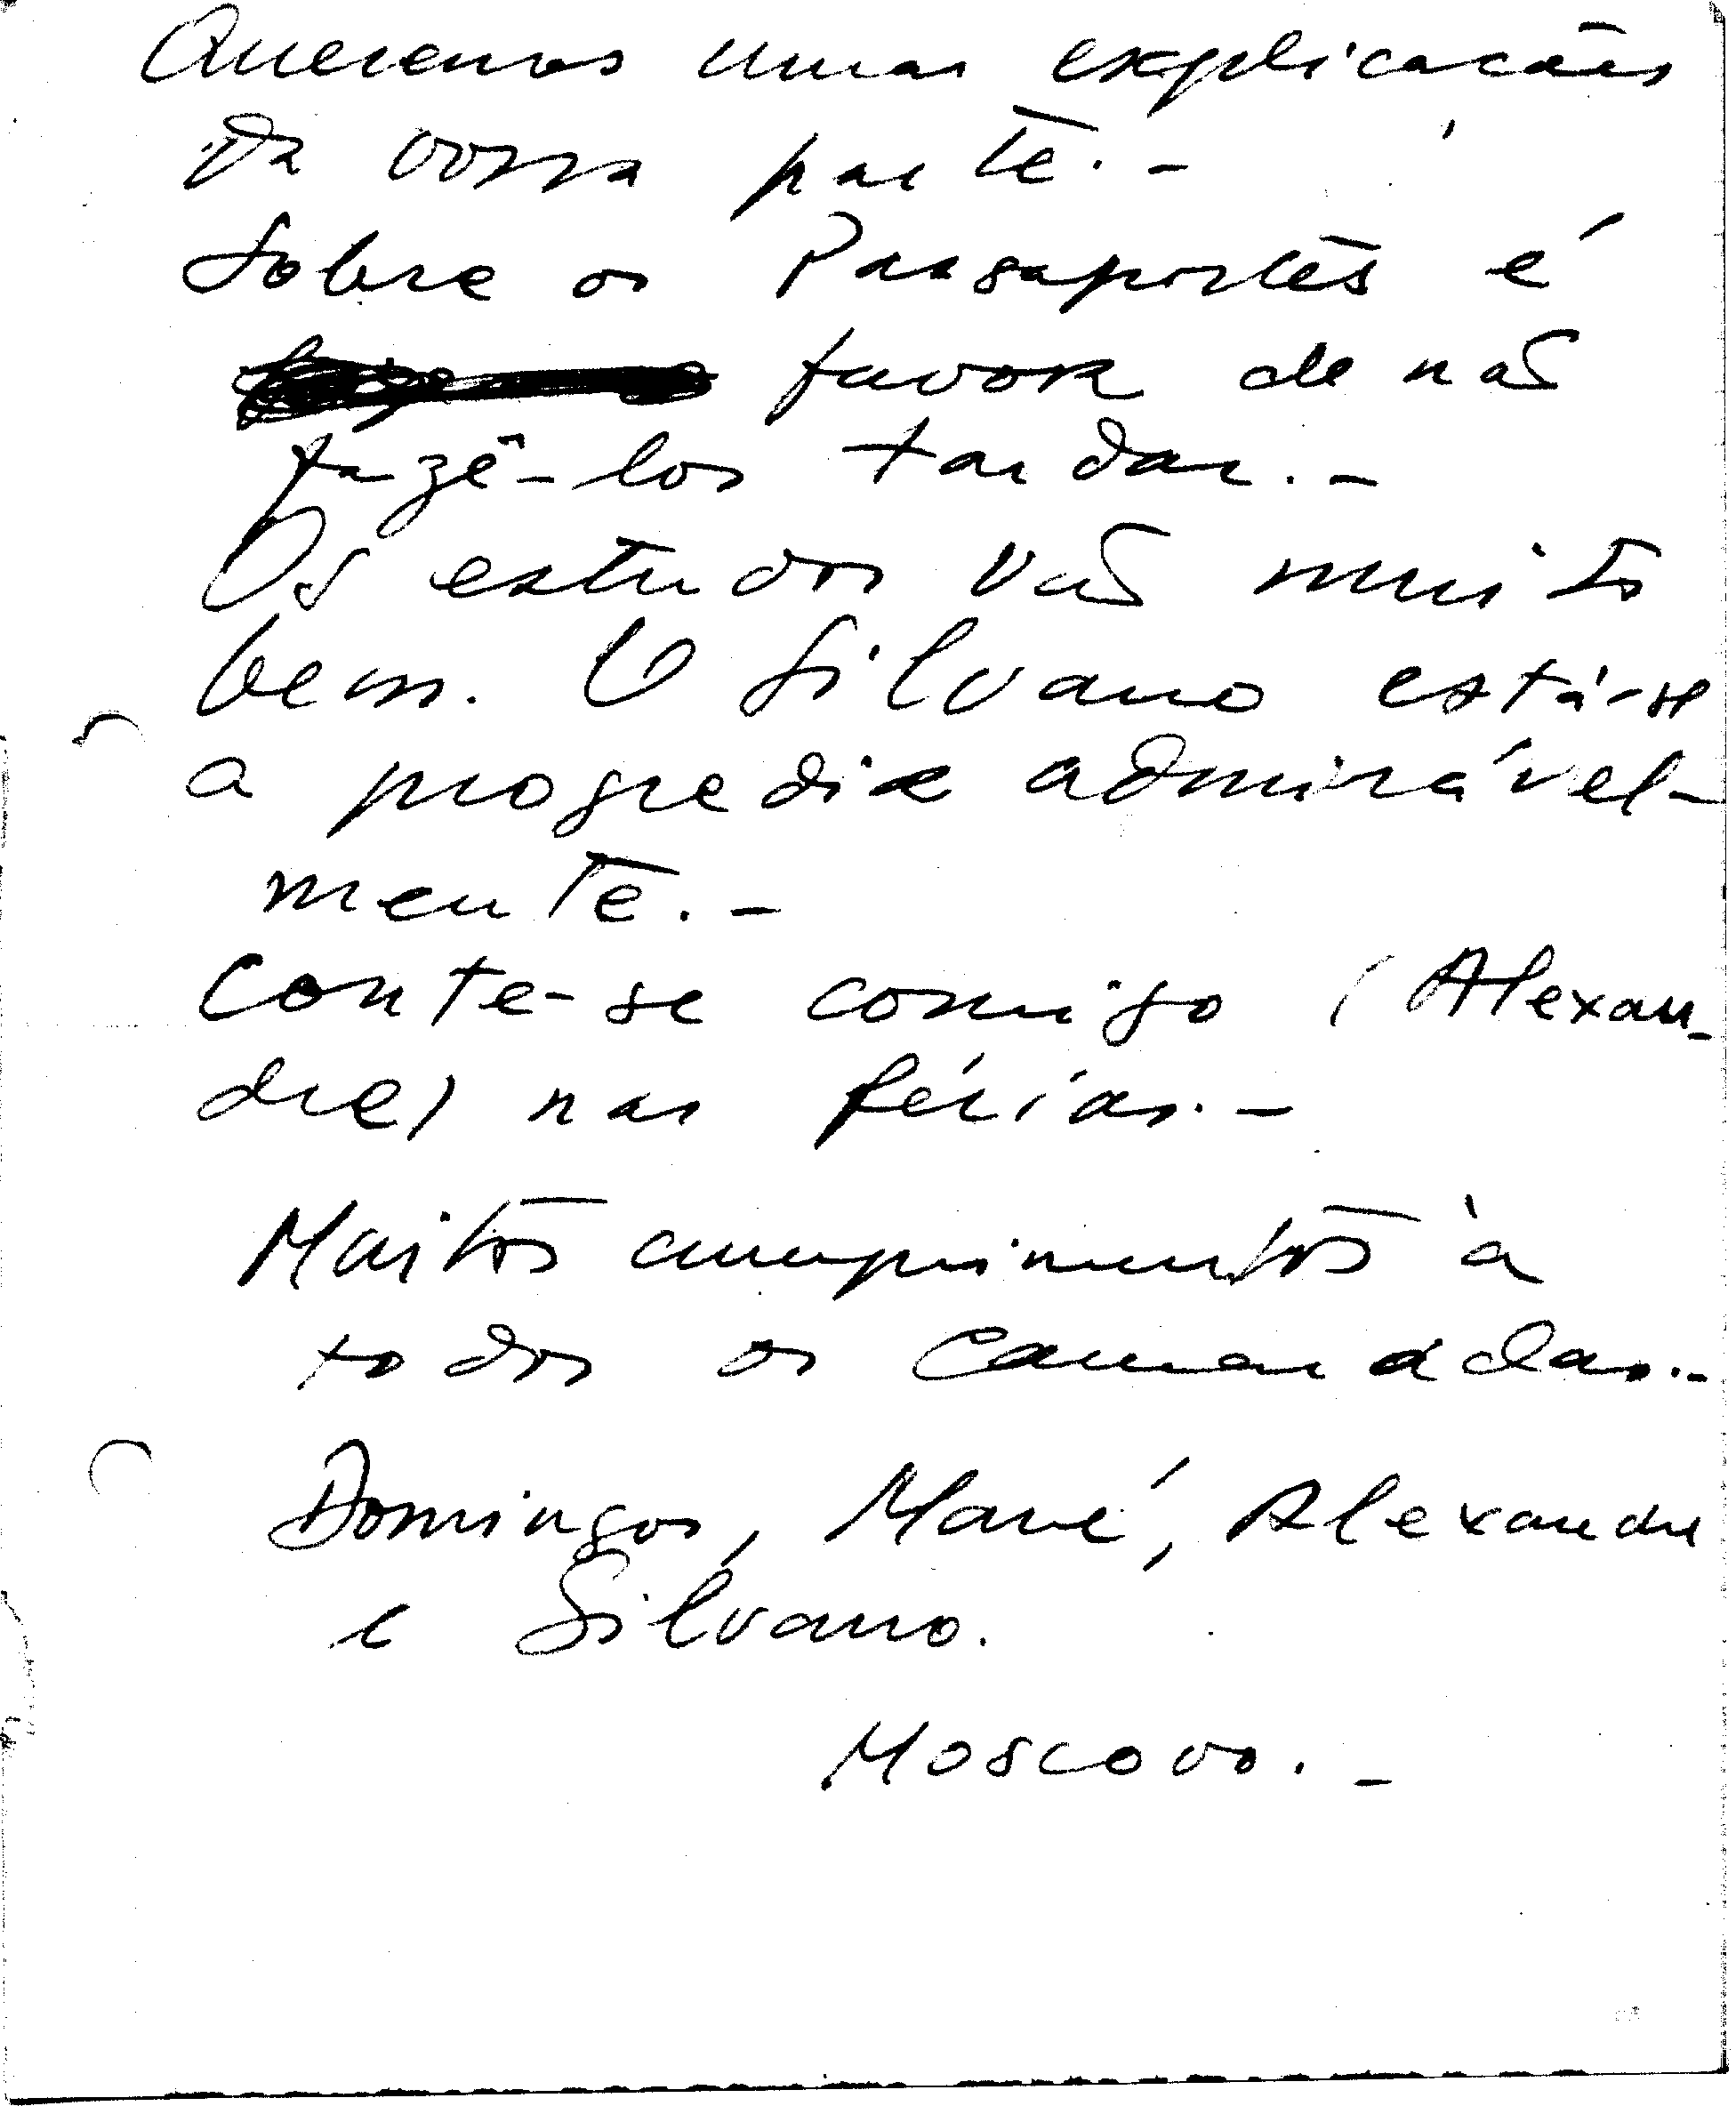 Queremos umas explicacões
da vossa parte.-
Sobre os Passaportes é
favor de não
fazê-los tardar.-
Os estudos vão muito
bem. O Silvano está-se
a progredir admirável-
mente.-
Conte-se comigo (Alexan-
dre) nas férias.-
Muitos cumprimentos à
todos os Camaradas.-
Domingos, Mavé, Alexandre
e Silvano.
Moscovo.-